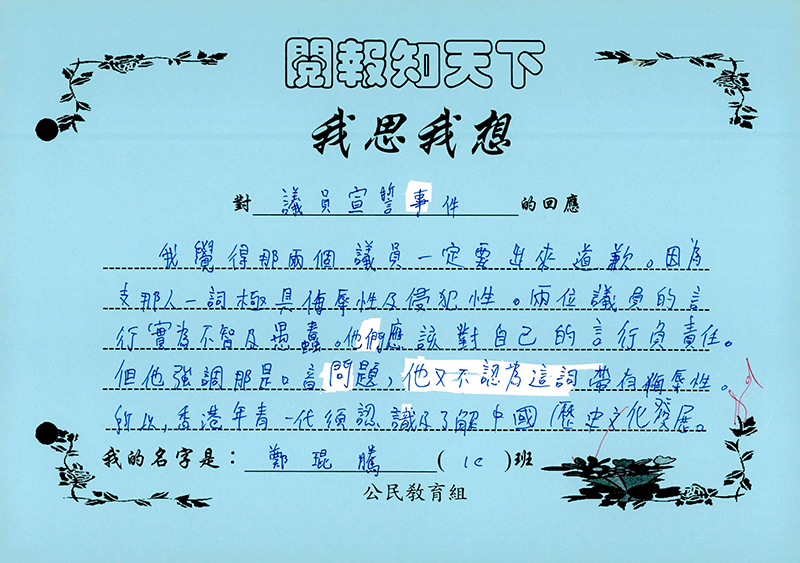 閱報知天下
我思我想
對 議員宣誓事件 的回應
我覺得那兩個議員一定要出來道歉。因為
支那人一詞極具侮辱性及侵犯性。兩位議員的言
行實為不智及愚蠢。他們應該對自己的言行負責任。
但他強調那是口音問題，他又不認為這詞帶有侮辱性。
所以，香港年青一代須認識及了解中國歷史文化發展。
我的名字是：鄭琨騰(1C)班
公民教育組